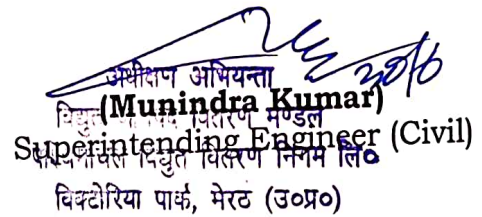 30/6
अधीक्षण अभियन्ता
(Munindra Kumar)
विद्युत वितरण मण्डल
Superintending Engineer (Civil)
पश्चिमांचल विद्युत वितरण निगम लि०
विक्टोरिया पार्क, मेरठ (उ०प्र०)